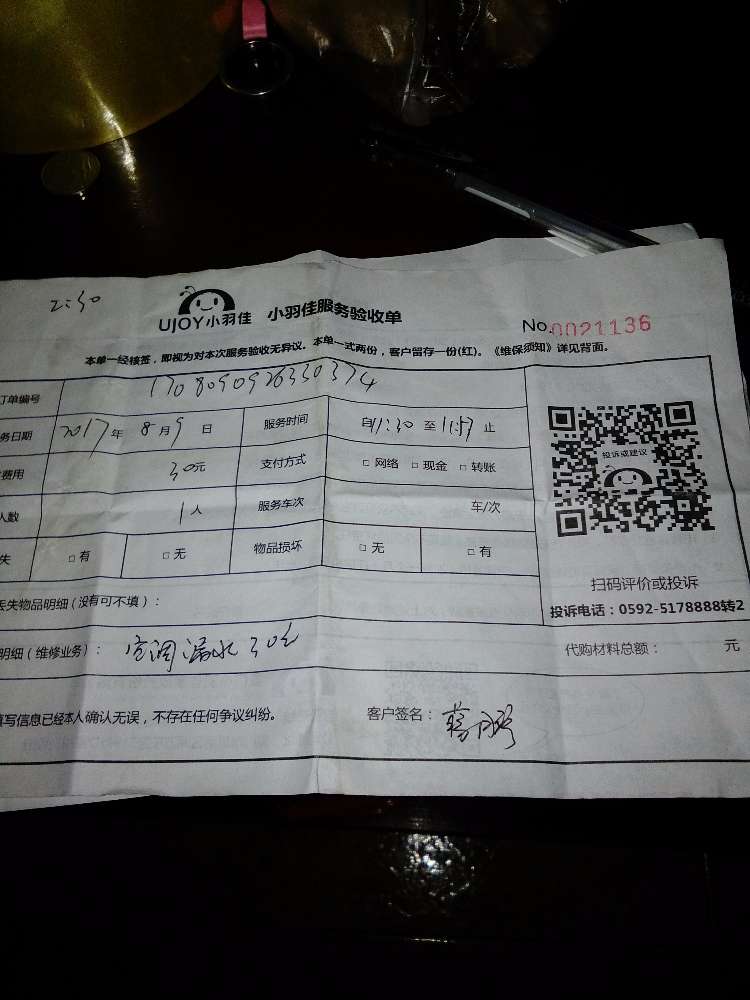 2:30
UJOY小羽佳 小羽佳服务验收单
No.0021136
本单一经核签，即视为对本次服务验收无异议。本单一式两份，客户留存一份(红)。《维保须知》详见背面。
订单编号 1708090926330374
务日期 2017年8月9日 服务时间 自11:30至11:57止
费用 30元 支付方式 □网络 □现金 □转账
人数 1人 服务车次 车/次
失 □有 □无 物品损坏 □无 □有
投诉或建议
扫码评价或投诉
投诉电话：0592-5178888转2
丢失物品明细(没有可不填)：
明细(维修业务)： 空调漏水30元
代购材料总额： 元
填写信息已经本人确认无误，不存在任何争议纠纷。
客户签名：